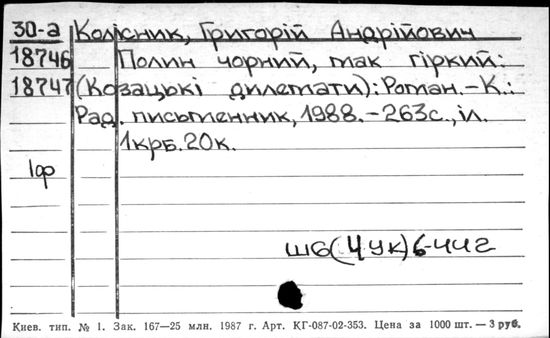 30-а Колісник, Григорій Андрійович
18746 Полин чорний, так гіркий:
18747 (Козацькі дилетати): Роман.-К.:
Рад. письменник, 1988.-263с., іл.
1крб.20к.
1ор
Ш6(4Ук)6-44г
Киев. тип. № 1. Зак. 167—25 млн. 1987 г. Арт. КГ-087-02-353. Цена за 1000 шт. — 3 руб.